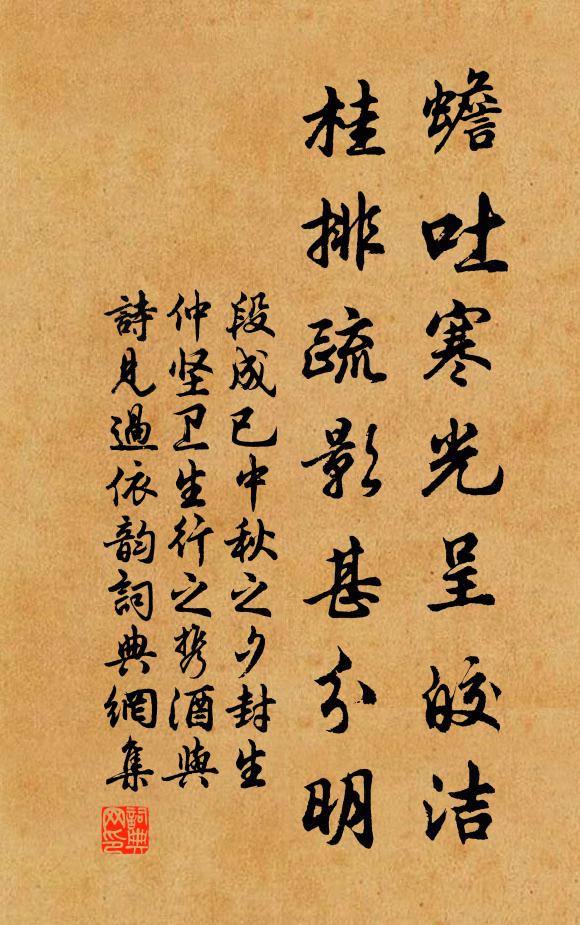 蟾吐寒光呈皎洁
桂排疏影甚分明
段成已中秋之夕封生
仲坚卫生行之携酒与
詩見過依韵詞典網集
詞典网印